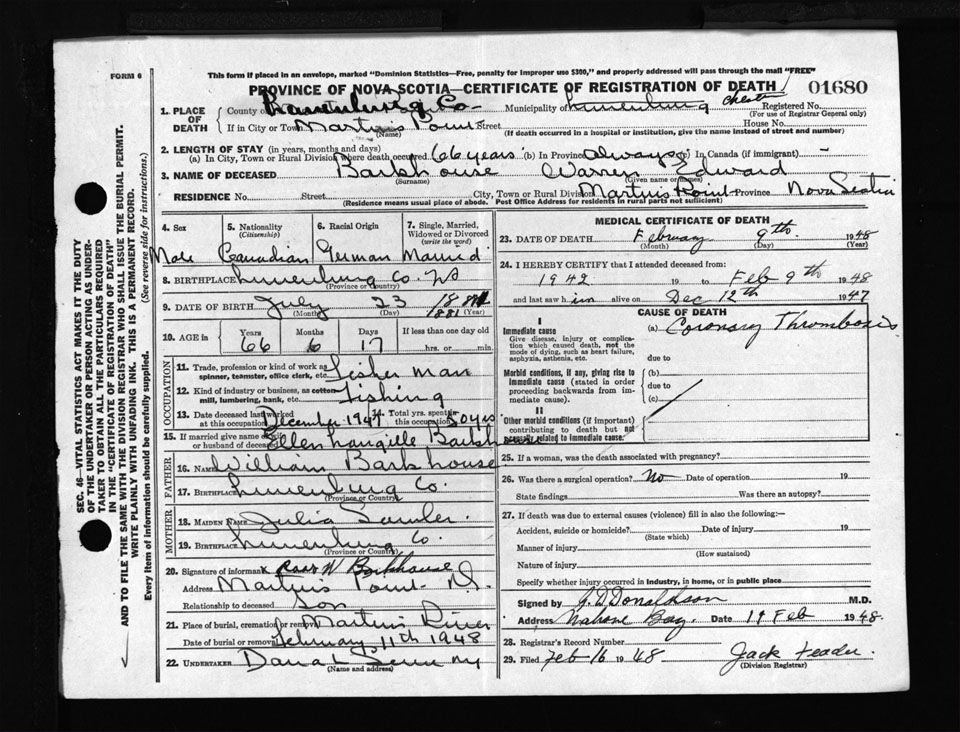 FORM 6
This form if placed in an envelope, marked "Dominion Statistics—Free, penalty for improper use $300," and properly addressed will pass through the mail "FREE"
PROVINCE OF NOVA SCOTIA—CERTIFICATE OF REGISTRATION OF DEATH 01680
1. PLACE OF DEATH County of Lunenburg Co— Municipality of Lunenburg Chester Registered No.
(For use of Registrar General only)
If in City or Town Martin's Point Street House No.
(Name) (If death occurred in a hospital or institution, give the name instead of street and number)
2. LENGTH OF STAY (in years, months and days)
(a) In City, Town or Rural Division where death occurred 66 years (b) In Province always (c) In Canada (if immigrant) —
3. NAME OF DECEASED Barkhouse Warren Edward
(Surname) (Given name or names)
RESIDENCE No. Street City, Town or Rural Division Martin's Point Province Nova Scotia
(Residence means usual place of abode. Post Office Address for residents in rural parts not sufficient)
4. Sex 5. Nationality (Citizenship) 6. Racial Origin 7. Single, Married, Widowed or Divorced (write the word)
Male Canadian German Married
8. BIRTHPLACE Lunenburg Co. NS
(Province or Country)
9. DATE OF BIRTH July 23 1881
(Month) (Day) 1881 (Year)
10. AGE in Years Months Days If less than one day old
66 6 17 hrs. or min.
OCCUPATION
11. Trade, profession or kind of work as spinner, teamster, office clerk, etc. Fisher man
12. Kind of industry or business, as cotton mill, lumbering, bank, etc. Fishing
13. Date deceased last worked at this occupation December 1947 14. Total yrs. spent in this occupation 50 yrs
15. If married give name of wife or husband of deceased Ellen Langille Barkhouse
FATHER
16. NAME William Barkhouse
17. BIRTHPLACE Lunenburg Co.
(Province or Country)
MOTHER
18. MAIDEN NAME Julia Sawler.
19. BIRTHPLACE Lunenburg Co.
(Province or Country)
20. Signature of informant W Barkhouse
Address Martin's Point N.S.
Relationship to deceased Son
21. Place of burial, cremation or removal Martins River
Date of burial or removal February 11th 1948
22. UNDERTAKER Dana L
(Name and address)
MEDICAL CERTIFICATE OF DEATH
23. DATE OF DEATH February 9th 1948
(Month) (Day) (Year)
24. I HEREBY CERTIFY that I attended deceased from:
1942 19 to Feb 9th 1948
and last saw him alive on Dec 12th 1947
CAUSE OF DEATH
I
Immediate cause
Give disease, injury or complication which caused death, not the mode of dying, such as heart failure, asphyxia, asthenia, etc.
(a) Coronary Thrombosis
due to
Morbid conditions, if any, giving rise to immediate cause (stated in order proceeding backwards from immediate cause).
(b)
due to
(c)
II
Other morbid conditions (if important) contributing to death but not causally related to immediate cause.
25. If a woman, was the death associated with pregnancy?
26. Was there a surgical operation? No Date of operation 19
State findings Was there an autopsy?
27. If death was due to external causes (violence) fill in also the following:—
Accident, suicide or homicide? Date of injury 19
(State which)
Manner of injury
(How sustained)
Nature of injury
Specify whether injury occurred in industry, in home, or in public place
Signed by J. D Donaldson M.D.
Address Mahone Bay Date 14 Feb 1948.
28. Registrar's Record Number
29. Filed Feb 16 1948 Jack Feader.
(Division Registrar)
SEC. 46—VITAL STATISTICS ACT MAKES IT THE DUTY
OF THE UNDERTAKER OR PERSON ACTING AS UNDERTAKER TO OBTAIN ALL THE PARTICULARS REQUIRED
IN THE "CERTIFICATE OF REGISTRATION OF DEATH"
AND TO FILE THE SAME WITH THE DIVISION REGISTRAR WHO SHALL ISSUE THE BURIAL PERMIT.
WRITE PLAINLY WITH UNFADING INK. THIS IS A PERMANENT RECORD.
Every item of information should be carefully supplied. (See reverse side for instructions.)